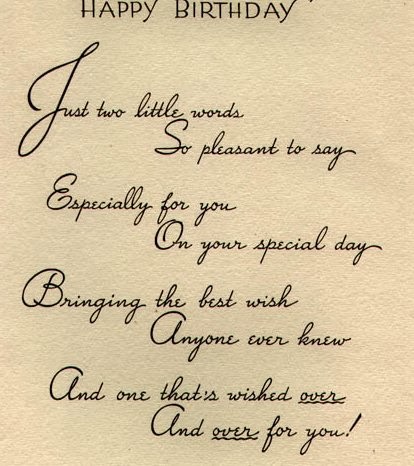 HAPPY BIRTHDAY
Just two little words
So pleasant to say
Especially for you
On your special day
Bringing the best wish
Anyone ever knew
And one that's wished over
And over for you!